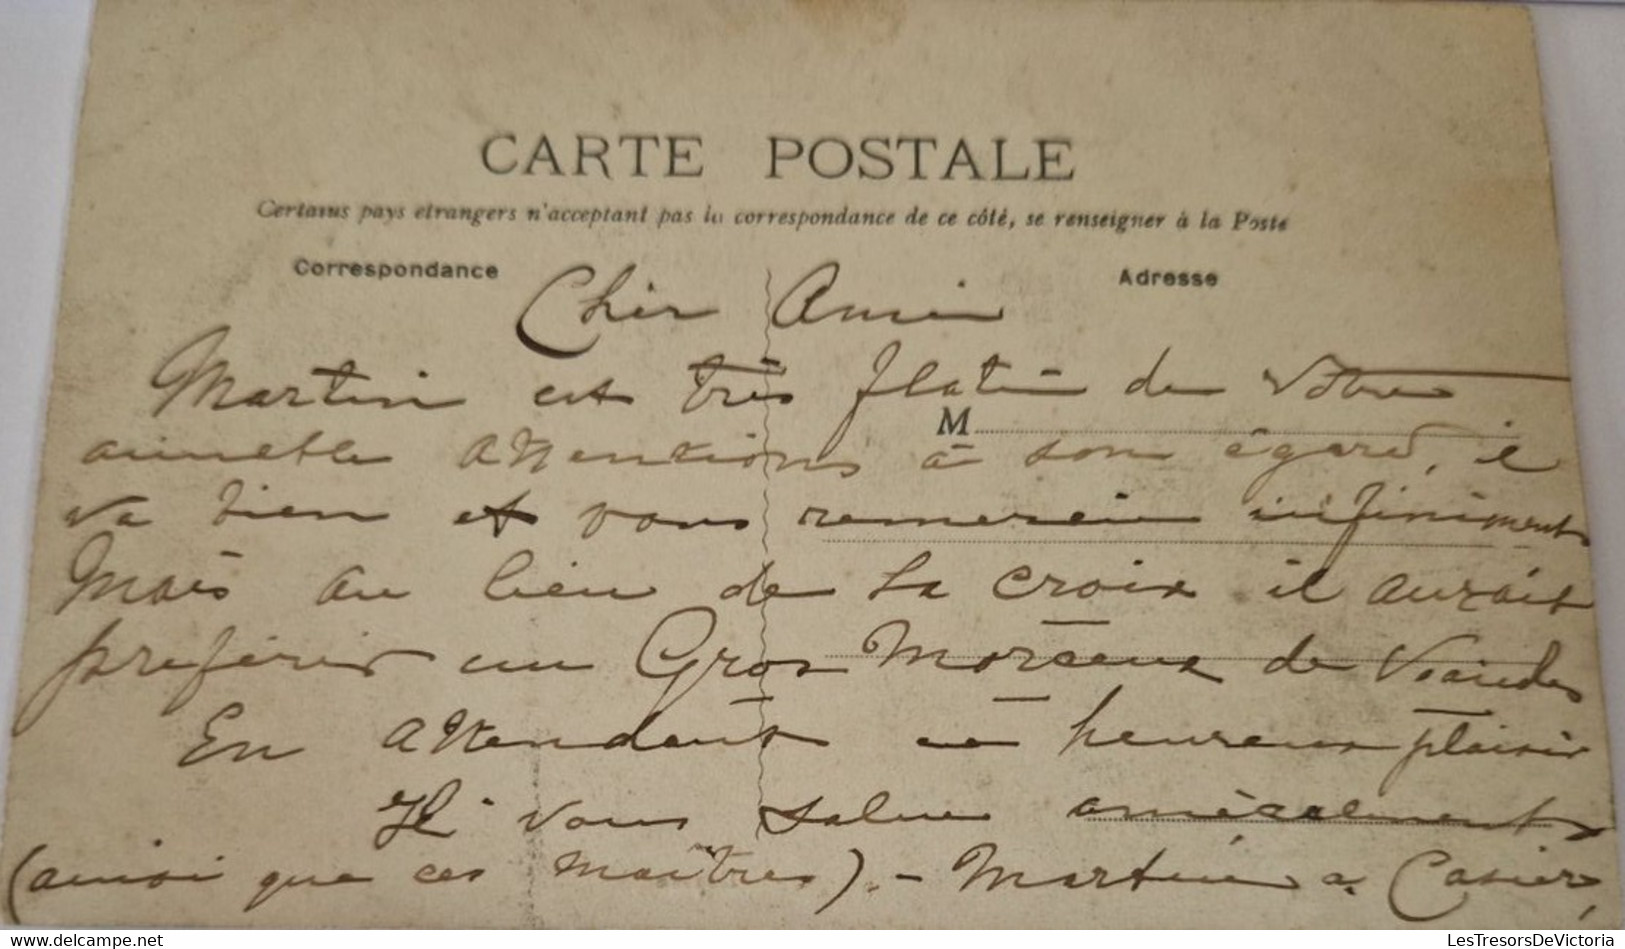 CARTE POSTALE
Certains pays etrangers n'acceptant pas la correspondance de ce côté, se renseigner à la Poste
Correspondance
Adresse
Cher Ami
Martin est très flatté de Votre
M
aimable attentions à son égard, il
va bien et vous remercie infiniment
Mais au lieu de la croix il aurait
préférer un Gros Morceaux de Viandes
En attendant ce heureux plaisir
Il vous salue amicalement
(ainsi que ces maîtres). - Martin a Casier,
LesTresorsDeVictoria
https://www.delcampe.net